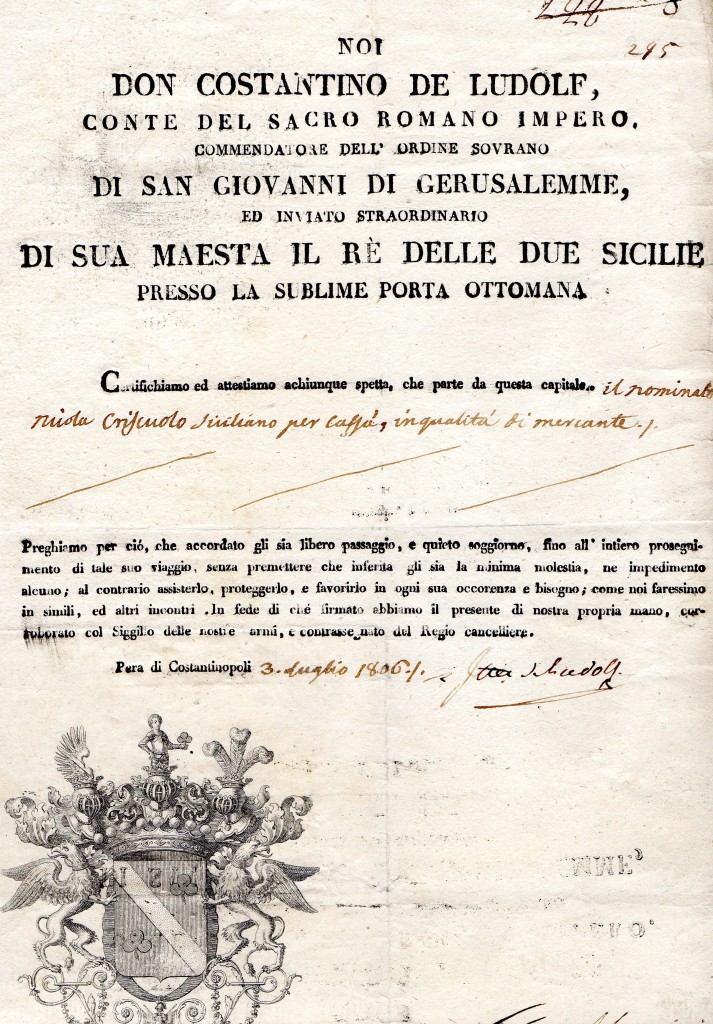 295
NOI
DON COSTANTINO DE LUDOLF,
CONTE DEL SACRO ROMANO IMPERO,
COMMENDATORE DELL' ORDINE SOVRANO
DI SAN GIOVANNI DI GERUSALEMME,
ED INVIATO STRAORDINARIO
DI SUA MAESTA IL RÈ DELLE DUE SICILIE
PRESSO LA SUBLIME PORTA OTTOMANA
Certifichiamo ed attestiamo achiunque spetta, che parte da questa capitale. il nominato
Criscuolo Siciliano per Caffa, in qualità di mercante./.
Preghiamo per ció, che accordato gli sia libero passaggio, e quieto soggiorno, fino all' intiero prosegui-
mento di tale suo viaggio, senza premettere che inferita gli sia la minima molestia, ne impedimento
alcuno; al contrario assisterlo, proteggerlo, e favorirlo in ogni sua occorenza e bisogno; come noi faressimo
in simili, ed altri incontri. In fede di ché firmato abbiamo il presente di nostra propria mano, cor-
roborato col Siggillo delle nostre armi, e contrassegnato dal Regio cancelliere.
Pera di Costantinopoli 3. Luglio 1806./. de Ludolf.